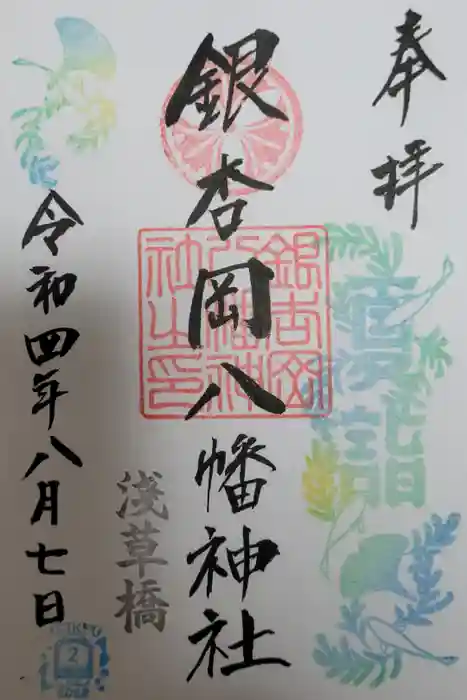 奉拝
夏詣
銀杏岡八幡神社
銀杏岡八幡神社之印
浅草橋
令和四年八月七日
2